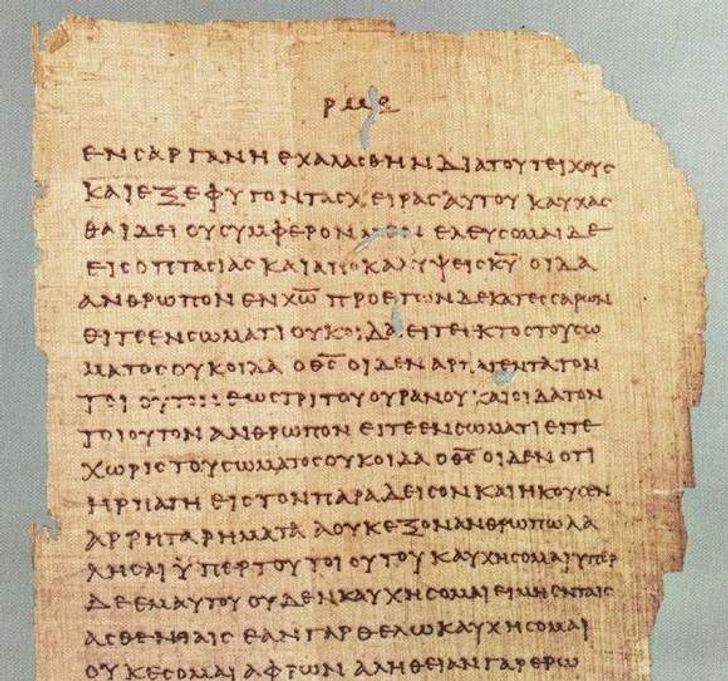 ρμε
ΕΝϹΑΡΓΑΝΗΕΧΑΛΑϹΘΗΝΔΙΑΤΟΥΤΕΙΧΟΥϹ
ΚΑΙΕΞΕΦΥΓΟΝΤΑϹΧΕΙΡΑϹΑΥΤΟΥΚΑΥΧΑϹ
ΘΑΙΔΕΙΟΥϹΥΜΦΕΡΟΝΜΕΝΕΛΕΥϹΟΜΑΙΔΕ
ΕΙϹΟΠΤΑϹΙΑϹΚΑΙΑΠΟΚΑΛΥΨΕΙϹΚ̅Υ̅ΟΙΔΑ
ΑΝΘΡΩΠΟΝΕΝΧ̅Ω̅ΠΡΟΕΤΩΝΔΕΚΑΤΕϹϹΑΡΩΝ
ΕΙΤΕΕΝϹΩΜΑΤΙΟΥΚΟΙΔΑΕΙΤΕΕΚΤΟϹΤΟΥϹΩ
ΜΑΤΟϹΟΥΚΟΙΔΑΟΘ̅Ϲ̅ΟΙΔΕΝΑΡΠΑΓΕΝΤΑΤΟΝ
ΤΟΙΟΥΤΟΝΕΩϹΤΡΙΤΟΥΟΥΡΑΝΟΥΚΑΙΟΙΔΑΤΟΝ
ΤΟΙΟΥΤΟΝΑΝΘΡΩΠΟΝΕΙΤΕΕΝϹΩΜΑΤΙΕΙΤΕ
ΧΩΡΙϹΤΟΥϹΩΜΑΤΟϹΟΥΚΟΙΔΑΟΘ̅Ϲ̅ΟΙΔΕΝΟΤΙ
ΗΡΠΑΓΗΕΙϹΤΟΝΠΑΡΑΔΕΙϹΟΝΚΑΙΗΚΟΥϹΕΝ
ΑΡΡΗΤΑΡΗΜΑΤΑΑΟΥΚΕΞΟΝΑΝΘΡΩΠΩΛΑ
ΛΗϹΑΙΫΠΕΡΤΟΥΤΟΙΟΥΤΟΥΚΑΥΧΗϹΟΜΑΙΫΠΕΡ
ΔΕΕΜΑΥΤΟΥΟΥΔΕΝΚΑΥΧΗϹΟΜΑΙΕΙΜΗΕΝΤΑΙϹ
ΑϹΘΕΝΙΑΙϹΕΑΝΓΑΡΘΕΛΩΚΑΥΧΗϹΟΜΑΙ
ΟΥΚΕϹΟΜΑΙΑΦΡΩΝΑΛΗΘΕΙΑΝΓΑΡΕΡΩ